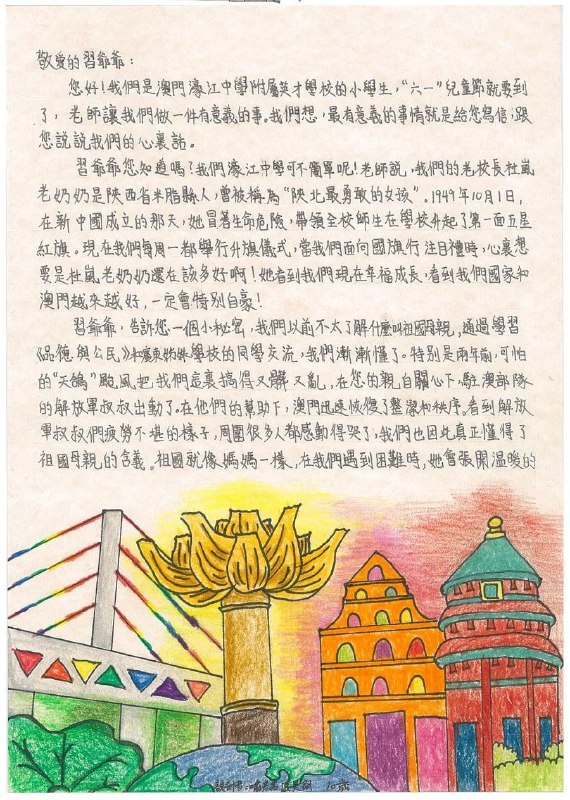 敬愛的習爺爺：
您好！我們是澳門濠江中學附屬英才學校的小學生，“六一”兒童節就要到
了，老師讓我們做一件有意義的事。我們想，最有意義的事情就是給您寫信，跟
您說說我們的心裏話。
習爺爺您知道嗎？我們濠江中學可不簡單呢！老師說，我們的老校長杜嵐
老奶奶是陝西省米脂縣人，曾被稱為“陝北最勇敢的女孩”。1949年10月1日，
在新中國成立的那天，她冒著生命危險，帶領全校師生在學校升起了第一面五星
紅旗。現在我們每周一都舉行升旗儀式，當我們面向國旗行注目禮時，心裏想
要是杜嵐老奶奶還在該多好啊！她看到我們現在幸福成長，看到我們國家和
澳門越來越好，一定會特別自豪！
習爺爺，告訴您一個小秘密，我們以前不太了解什麼叫祖國母親，通過學習
《品德與公民》和與姊妹學校的同學交流，我們漸漸懂了。特別是兩年前，可怕
的“天鴿”颱風把我們這裏搞得又髒又亂，在您的親自關心下，駐澳部隊
的解放軍叔叔出動了。在他們的幫助下，澳門迅速恢復了整潔和秩序。看到解放
軍叔叔們疲勞不堪的樣子，周圍很多人都感動得哭了，我們也因此真正懂得了
祖國母親的含義。祖國就像媽媽一樣，在我們遇到困難時，她會張開溫暖的
10歲